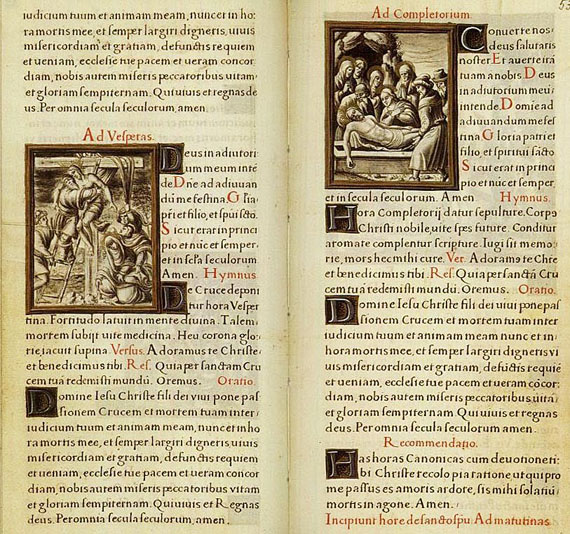 iudicium tuum et animam meam, nunc et in ho:
ra mortis mee, et semper largiri digneris, uiuis
misericordiam et gratiam, defunctis requiem
et ueniam, ecclesie tue pacem et ueram concor
diam, nobis autem miseris peccatoribus uitam
et gloriam sempiternam. Qui uiuis et regnas de
us. Per omnia secula seculorum, amen.
Ad Vesperas.
Deus in adiutori
um meum inté
de Dñe ad adiuuan
dú me festina. Glīa
pr̄i et filio, et spūi scto.
Sicut erat in princi
pio et núc et semper,
et in secula seculorum.
Amen. Hymnus
De Cruce deponi
tur hora Vesper
tina. Fortitudo latuit in mente diuina. Talem
mortem subijt uite medicina. Heu corona glo:
rie iacuit supina. Versus. Adoramus te Christe
et benedicimus tibi. Res. Quia per sanctam Cru
cem tuā redemisti mundū. Oremus. Oratio.
Domine Iesu Christe fili dei uiui pone pas
sionem Crucem et mortem tuam inter
iudicium tuum et animam meam, nunc et in ho
ra mortis mee, et semper largiri digneris uiuis
misericordiam et gratiam, defunctis requiem
et ueniam, ecclesie tue pacem et ueram concor
diam, nobis autem miseris peccatoribus uitam
et gloriam sempiternam. Qui uiuis et Regnas
deus. Per omnia secula seculorum, amen.
53
Ad Completorium.
Conuerte nos
deus salutaris
noster Et auerte irā
tuam a nobis Deus
in adiutorium meū
intende Domine ad
adiuuandum me fes
tina Gloria patri et
filio, et spiritui sācto.
Sicut erat in princi
pio et nūc et semper,
et in secula seculorum. Amen Hymnus.
Hora Completorij datur sepulture. Corpo
Christi nobile, uite spes future. Conditur
aromate complentur scripture. Iugi sit memo:
rie, mors hec mihi cure. Ver. Adoramo te Chre
et benedicimus tibi. Res. Quia per sanctā Cru
cem tuā redemisti mundū. Oremus. Oratio.
Domine Iesu Christe fili dei uiui pone pas
sionem Crucem et mortem tuam inter
iudicium tuum et animam meam nunc et in
hora mortis mee, et semper largiri digneris ui
uis misericordiam et gratiam, defūctis requiē
et ueniam, ecclesie tue pacem et ueram cōcor:
diam, nobis autem miseris peccatoribus uitā
et gloriam sempiternam. Qui uiuis et regnas
deus. Per omnia secula seculorum amen.
Recommendatio.
Has horas Canonicas cum deuotione ti:
bi Christe recolo pia ratione, ut qui pro
me passus es amoris ardore, sis mihi solatiū
mortis in agone. Amen.
Incipiunt hore de sancto spū Ad matutinas.